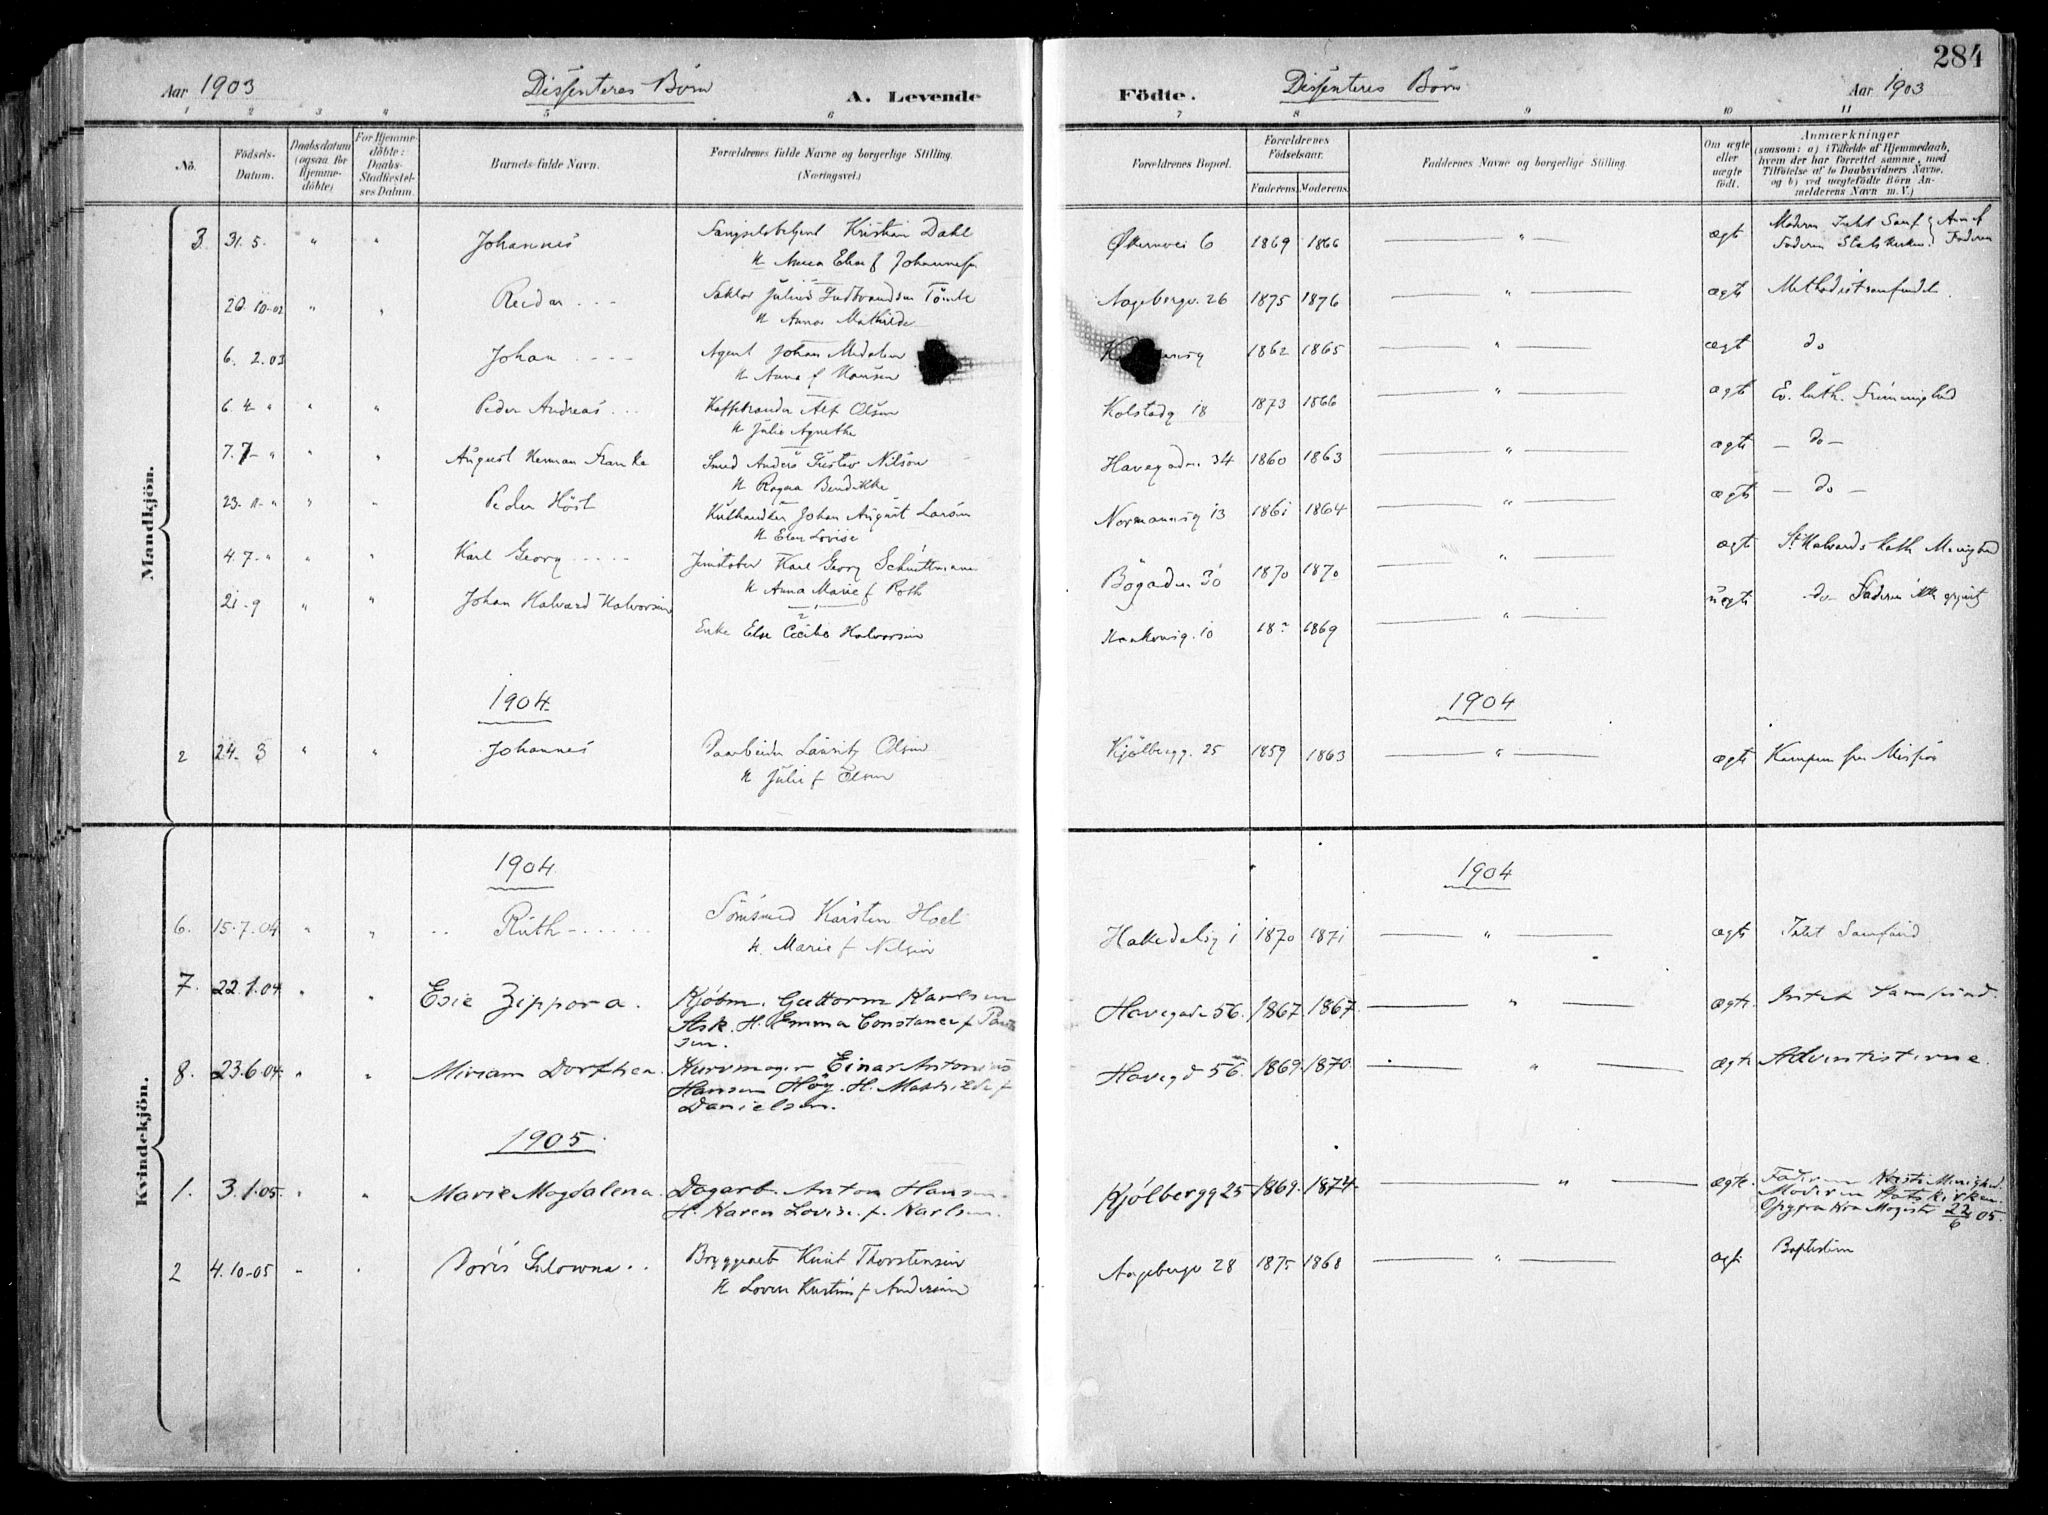 284
Aar 1903 Dissenteres Børn A. Levende Födte. Dissenteres Börn Aar 1903
1 2 3 4 5 6 7 8 9 10 11
No. Födsels-Datum. Daabsdatum (ogsaa for Hjemmedöbte) For Hjemmedöbte: Daabs-Stadfæstelses Datum. Barnets fulde Navn. Forældrenes fulde Navne og borgerlige Stilling. (Næringsvei.) Forældrenes Bopæl. Forældrenes Födselsaar. Faderens. Moderens. Faddernes Navne og borgerlige Stilling. Om ægte eller uægte födt. Anmærkninger (saasom: a) i Tilfælde af Hjemmedaab, hvem der har forrettet samme, med Tilföielse af to Daabsvidners Navne, og b) ved uægtefödte Börn Anmelderens Navn m. V.)
Mandkjön.
3 31. 5. " " Johannes Kristian Dahl Økernvei 6 1869 1866 " ægt
H Anna Elise f Johannessen Faderen Statskirken. Faderen
26. 10-02 " " Reidar Julius Gudbrandsen Aagebergv. 26 1875 1876 " ægte Methodistsamfundet.
H Anna Mathilde
6. 2.03 Johan Agent Johan 1862 1865 " ægt do
H Anna f Hansen
6. 4 " " " Peder Andreas Alf Olsen Kolstadg 18 1873 1866 " ægt Ev. luth. Frimenighed
H Julie Agnethe
7. 7- " " " August Herman Franke Smed Anders Gustav Nilsen Havegaden 34 1860 1863 " ægte — do —
H Ragna Bendikke
23. 11- " " " Peder Høst Johan August Larsen Normannsg 13 1861 1864 " ægte — do —
H Elen Lovise
4. 7. " " " Karl Georg Karl Georg Bögaden 30 1870 1870 " ægte St Halvards kath Menighed
H Anna Marie f Roth
21. 9 " " Johan Halvard Halvorsen Enke Else Cecilie Halvorsen Haakonsg. 10 18? 1869 " uægte do Faderen ikke opgivet
1904. 1904
2 24. 3 " " Johannes Lauritz Olsen Kjölbergg. 25 1859 1863 " ægte Kampen fri Mission
H Julie f Olsen
Kvindekjön.
1904 1904
6. 15. 7. 04 " " Ruth Karsten Hoel Hakedalsg 1 1870 1871 " ægte Samfund
H. Marie f Nilsen
7. 22. 1. 04 " " Esie Zippora. Kjøbm. Guttorm Karlsen Havegade 56. 1867. 1867. " ægte. Samfund.
Ask. H. Emma Constance f
sen.
8. 23. 6. 04. " " Miriam Dorthea. Kurvmager Einar Antonius Havegd 56. 1869. 1870. " ægte Adventisterne
Hansen Høy. H. Mathilde f
Danielsen.
1905.
1. 3. 1. 05. " " Marie Magdalena. Dagarb. Anton Hansen. Kjölbergg 25 1869. 1874. " ægte. Faderen Menighed.
H. Karen Lovise. f. Karlsen. Moderen Statskirken.
Opg fra Magistr 22/6 05.
2 4. 10-05 Bryggearb Knut Thorstensen Aagebergv 28 1875 1868 " ægt. Baptisten
H f Andersen